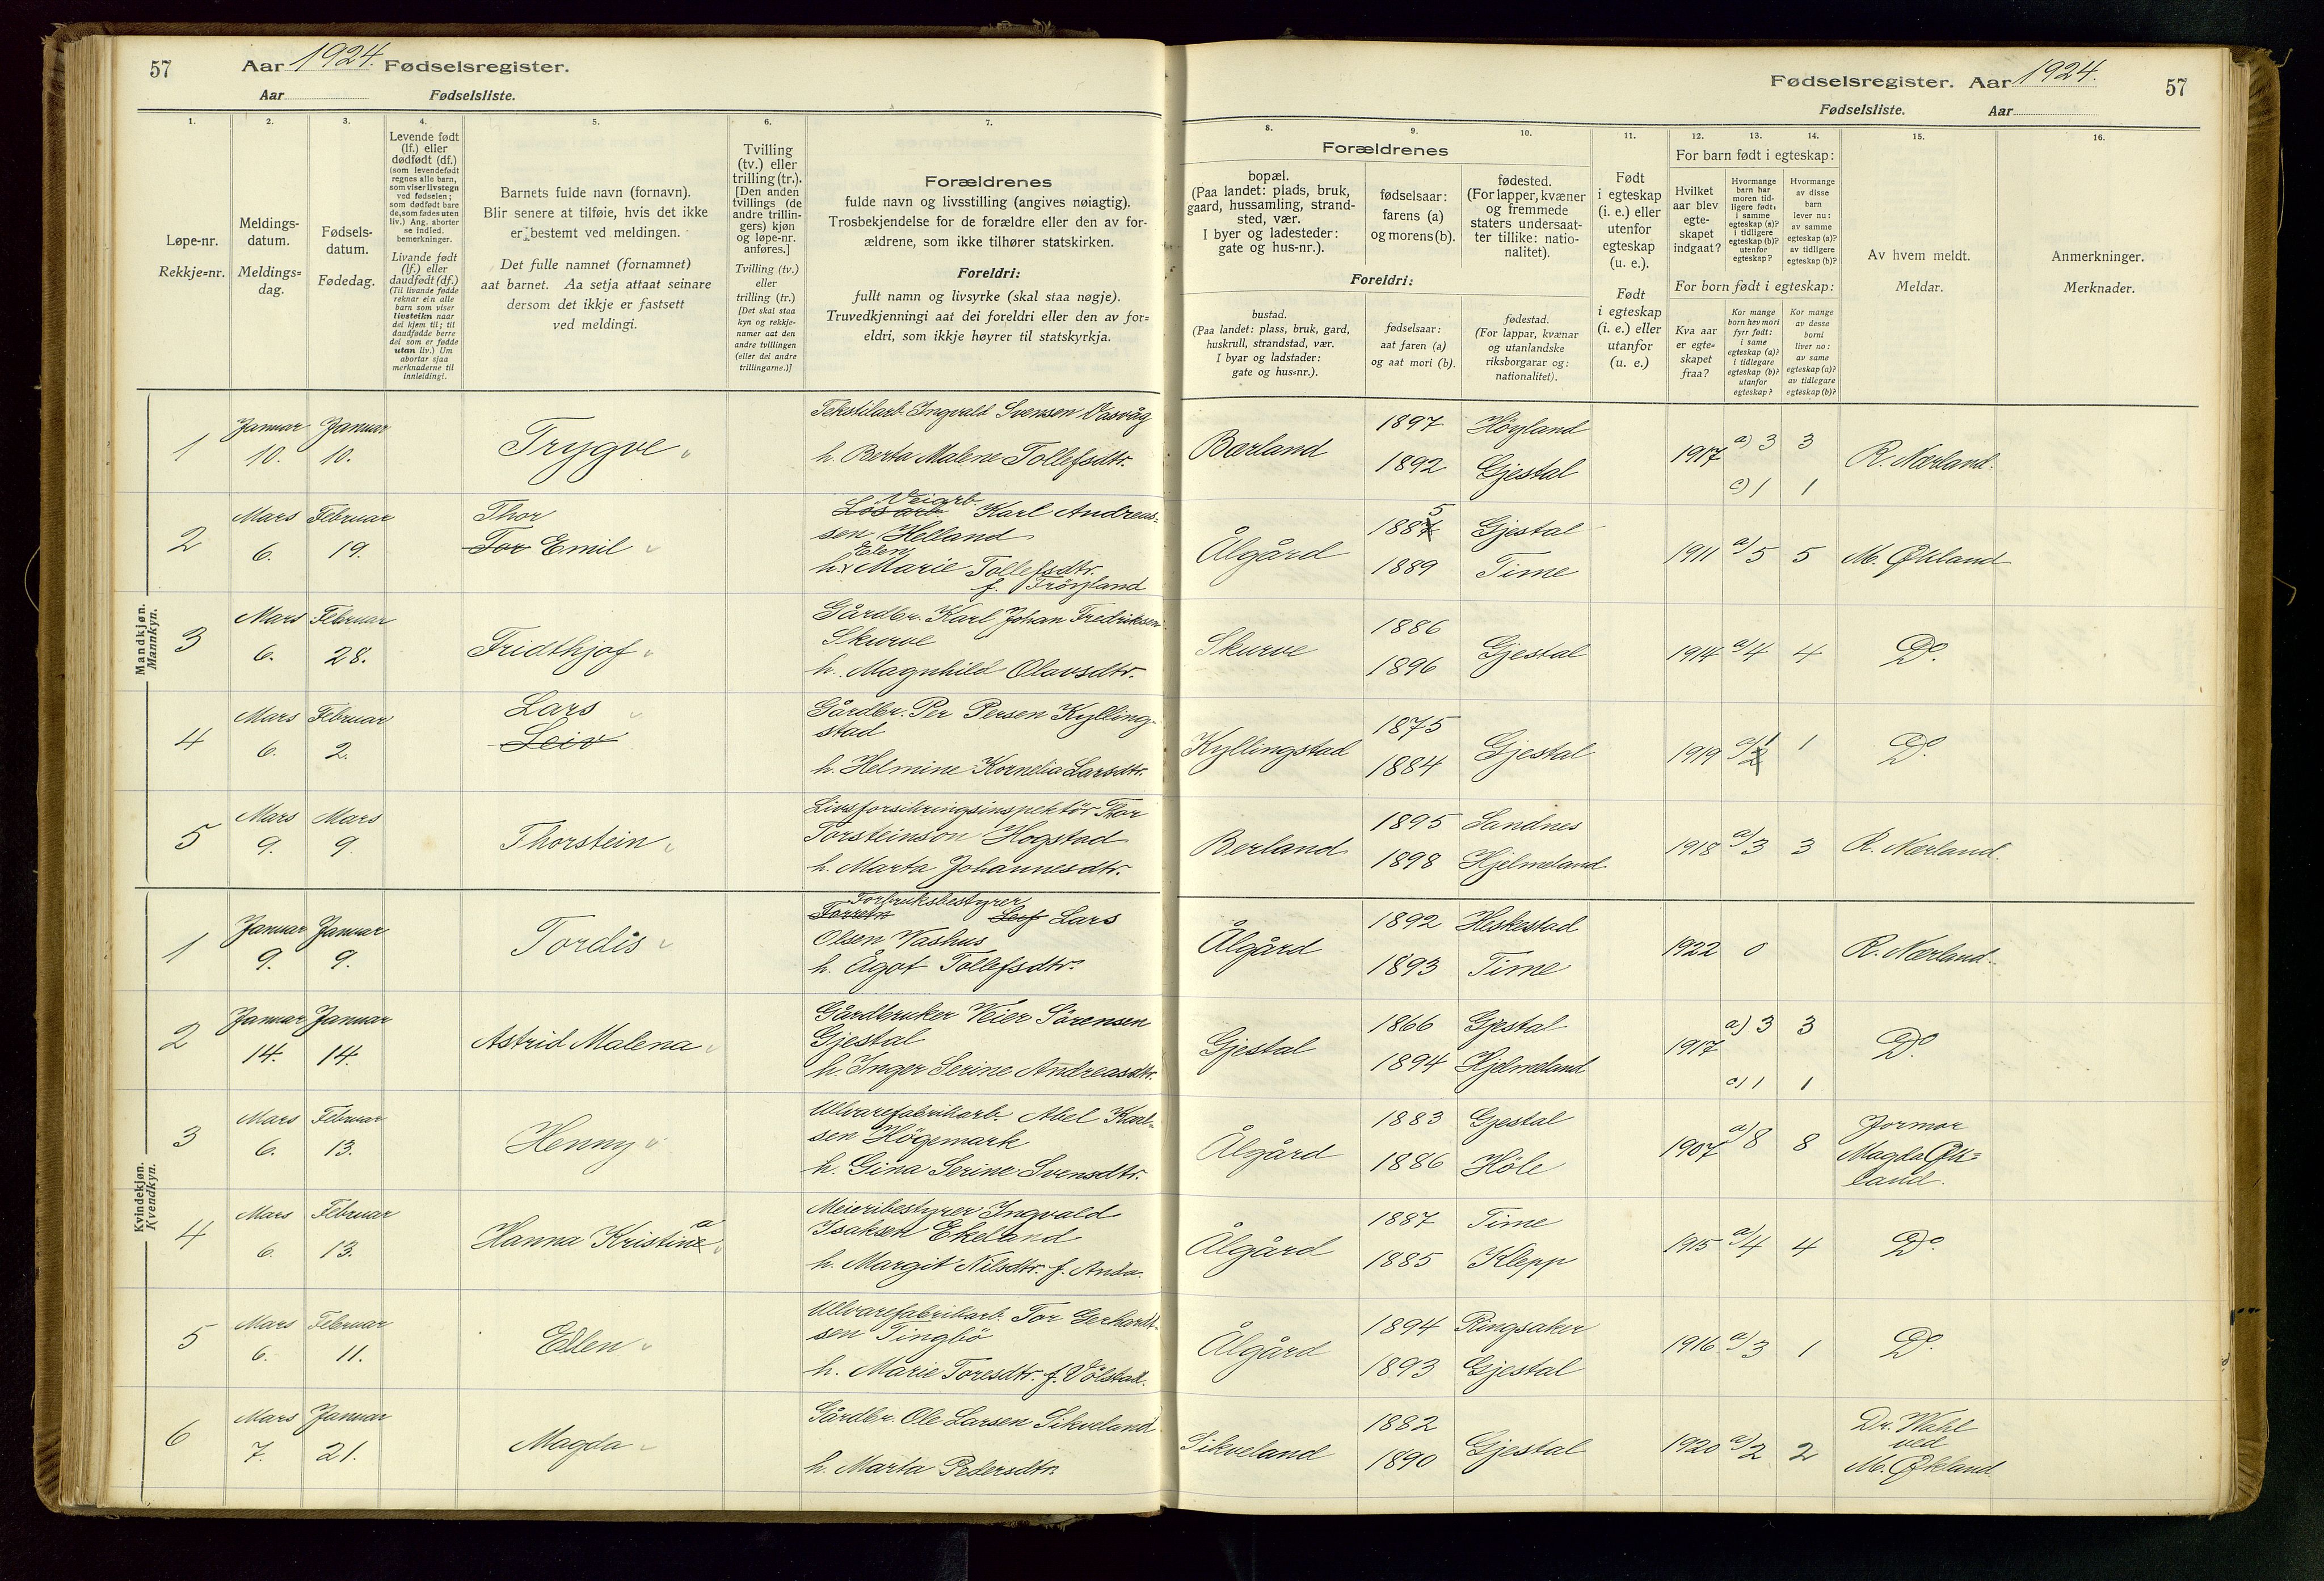 57
Aar 1924. Fødselsregister.
Aar
Fødselsliste.
1.
Løpe-nr.
Rekkje=nr.
2.
Meldings-
datum.
Meldings=
dag.
3.
Fødsels-
datum.
Fødedag.
4.
Levende født
(lf.) eller
dødfødt (df.)
(som levendefødt
regnes alle barn,
som viser livstegn
ved fødselen;
som dødfødt bare
de, som fødes uten
liv.) Ang. aborter
se indled.
bemerkninger.
Livande født
(lf.) eller
daudfødt (df.)
(Til livande fødde
reknar ein alle
barn som viser
livsteikn naar
dei kjem til; til
daudfødde berre
dei som er fødde
utan liv.) Um
abortar sjaa
merknaderne til
innleidingi.
5.
Barnets fulde navn (fornavn).
Blir senere at tilføie, hvis det ikke
er bestemt ved meldingen.
Det fulle namnet (fornamnet)
aat barnet. Aa setja attaat seinare
dersom det ikkje er fastsett
ved meldingi.
6.
Tvilling
(tv.) eller
trilling (tr.).
[Den anden
tvillings (de
andre trillin-
gers) kjøn
og løpe-nr.
anføres.]
Tvilling (tv.)
eller
trilling (tr.)
[Det skal staa
kyn og rekkje-
numer aat den
andre tvillingen
(eller dei andre
trillingarne.)]
7.
Forældrenes
fulde navn og livsstilling (angives nøiagtig).
Trosbekjendelse for de forældre eller den av for-
ældrene, som ikke tilhører statskirken.
Foreldri:
fullt namn og livsyrke (skal staa nøgje).
Truvedkjenningi aat dei foreldri eller den av for=
eldri, som ikkje høyrer til statskyrkja.
Fødselsregister. Aar 1924.
57
Fødselsliste.
Aar
8.
Forældrenes
bopæl.
(Paa landet: plads, bruk,
gaard, hussamling, strand-
sted, vær.
I byer og ladesteder:
gate og hus-nr.).
Foreldri:
bustad.
(Paa landet: plass, bruk, gard,
huskrull, strandstad, vær.
I byar og ladstader:
gate og hus=nr.).
9.
fødselsaar:
farens (a)
og morens (b).
fødselsaar:
aat faren (a)
og aat mori (b).
10.
fødested.
(For lapper, kvæner
og fremmede
staters undersaat-
ter tillike: natio-
nalitet).
fødestad.
(For lappar, kvænar
og utanlandske
riksborgarar og:
nationalitet).
11.
Født
i egteskap
(i. e.) eller
utenfor
egteskap
(u. e.).
Født
i egteskap
(i. e.) eller
utanfor
(u. e.)
12.
13.
14.
For barn født i egteskap:
Hvilket
aar blev
egte-
skapet
indgaat?
Hvormange
barn har
moren tid-
ligere født:
i samme
egteskap (a)?
i tidligere
egteskap (b)?
utenfor
egteskap?
Hvormange
av disse
barn
lever nu:
av samme
egteskap (a)?
av tidligere
egteskap (b)?
For born født i egteskap:
Kva aar
er egte=
skapet
fraa?
Kor mange
born hev mori
fyrr født:
i same
egteskap (a)?
i tidlegare
egteskap (b)?
utanfor
egteskap?
Kor mange
av desse
borni
liver no:
av same
egteskap (a)?
av tidlegare
egteskap (b)?
15.
Av hvem meldt.
Meldar.
16.
Anmerkninger.
Merknader.
Mandkjøn.
Mannkyn.
1 Januar 10. Januar 10. Trygve
Tekstilarb. Ingvald Svensen Vasvåg
h. Berta Malene Tollefsdtr.
Bærland 1897 Höyland
1892 Gjestal
1917 a) 3 3
c) 1 1
R. Nærland.
2 Mars 6. Februar 19. Thor
Tor Emil
Veiarb.
Lösarb. Karl Andreas=
sen Helland
Elen
h. Marie Tollefsdtr.
f. Fröyland
Ålgård 1887 5 Gjestal
1889 Time
1911 a) 5 5 M. Økland
3 Mars 6. Februar 28. Fridthjof
Gårdbr. Karl Johan Fredriksen
Skurve
h. Magnhild Olavsdtr.
Skurve 1886
1896 Gjestal
1914 a) 4 4 Do.
4 Mars 6. Februar 2. Lars
Leiv
Gårdbr. Per Persen Kylling-
stad
h. Helmine Kornelia Larsdtr.
Kyllingstad 1875
1884 Gjestal
1919 a) 1 2 1 Do.
5 Mars 9. Mars 9. Thorstein
Livsforsikringsinspektör Thor
Torsteinson Hogstad
h. Marta Johannesdtr.
Berland 1895 Sandnes
1898 Hjelmeland
1918 a) 3 3 R. Nærland.
Kvindekjøn.
Kvendkyn.
1 Januar 9. Januar 9. Tordis
Forbruksbestyrer
Forretn Leif Lars
Olsen Vashus
h. Ågot Tollefsdtr.
Ålgård 1892 Heskestad
1893 Time
1922 0 R. Nærland.
2 Januar 14. Januar 14. Astrid Malena
Gårdbruker Veier Sörensen
Gjestal
h. Inger Serine Andreasdtr.
Gjestal 1866 Gjestal
1894 Hjelmeland
1917 a) 3 3
c) 1 1
Do.
3 Mars 6. Februar 13. Henny
Ullvarefabrikarb. Abel Karl=
sen Högemark
h. Gina Serine Svensdtr.
Ålgård 1883 Gjestal
1886 Höle
1907 a) 8 8
Jormor
Magda Øk=
land.
4 Mars 6. Februar 13. Hanna Kristine a
Meieribestyrer Ingvald
Isaksen Ekeland
h. Margit Nilsdtr. f. Anda.
Ålgård 1887 Time
1885 Klepp
1915 a) 4 4 Do.
5 Mars 6. Februar 11. Ellen
Ullvarefabrikarb. Tor Gerhardt-
sen Tingbö
h. Marie Toresdtr. f. Völstad.
Ålgård 1894 Ringsaker
1893 Gjestal
1916 a) 3 1 Do.
6 Mars 7. Januar 21. Magda
Gårdbr. Ole Larsen Sikveland
h. Marta Pedersdtr.
Sikveland 1882
1890 Gjestal
1920 a) 2 2
Dr. Wahl
ved
M. Økland.